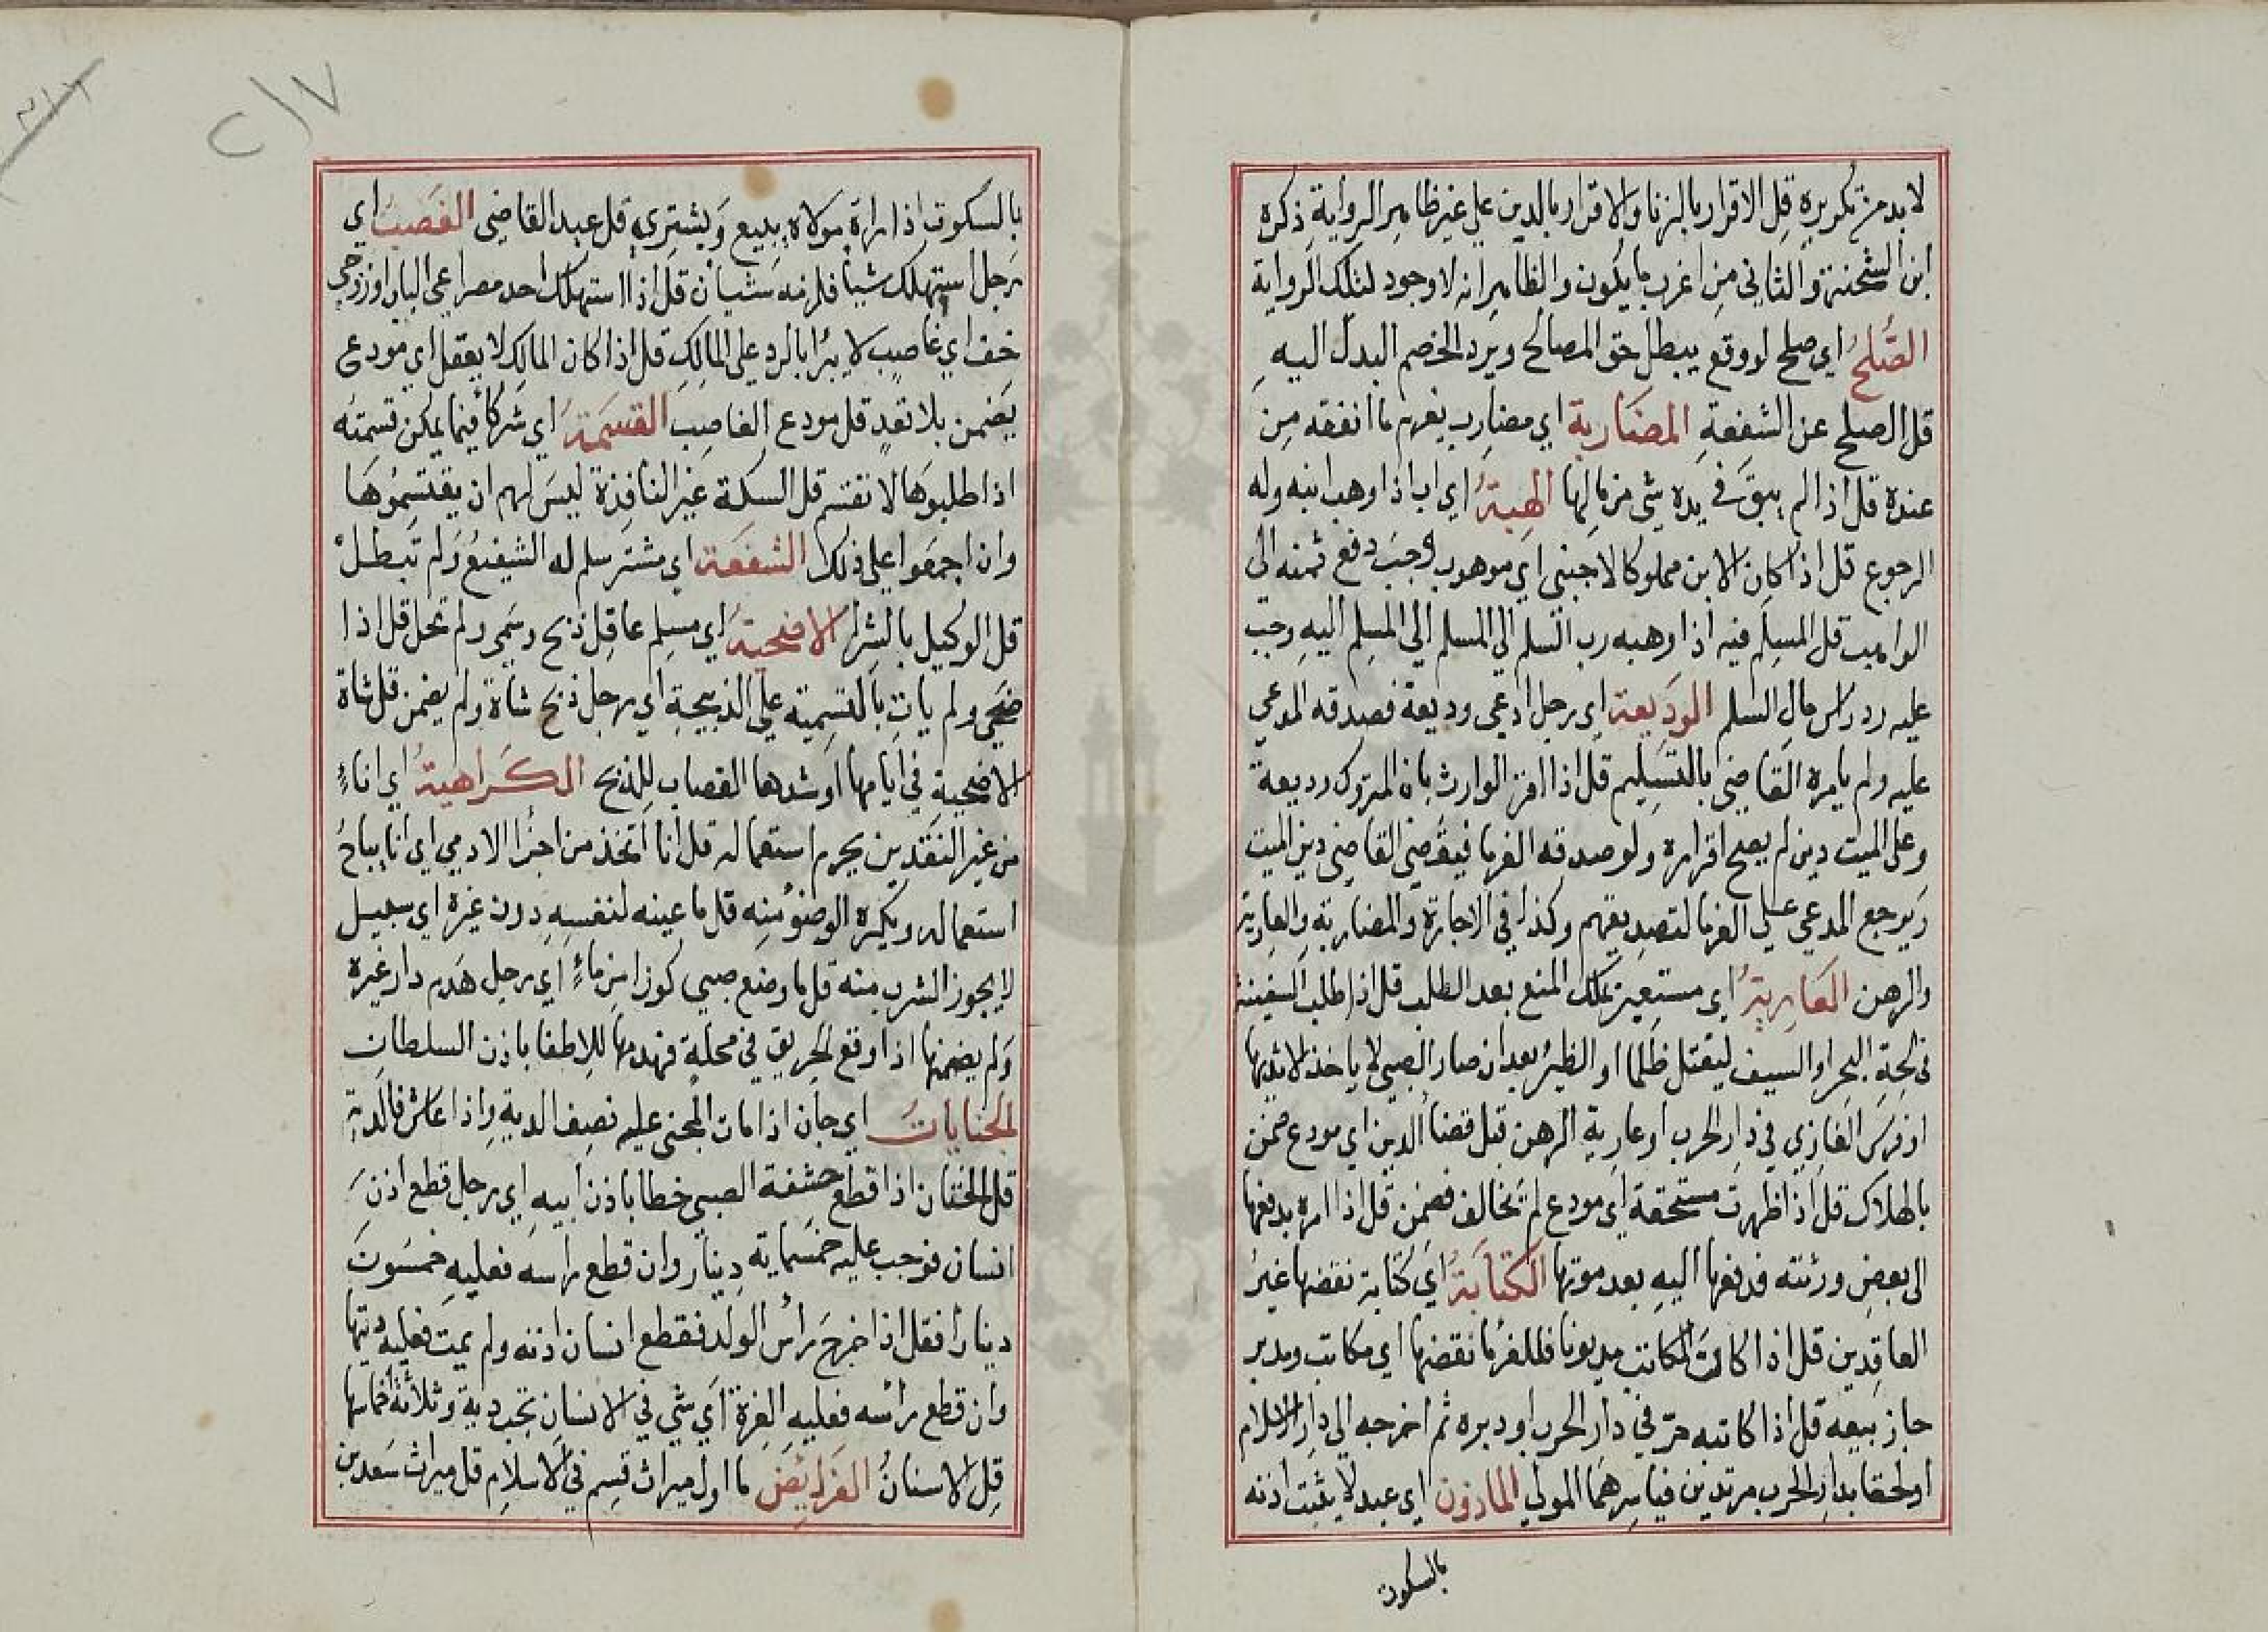 لا بد من تكريره قل الاقرار بالزنا والاقرار بالدين علي غير ظاهر الرواية ذكره
ابن الشحنة والثاني من اغرب ما يكون والظاهر انه لا وجود لتلك الرواية
الصلح اي صلح لو وقع يبطل حق المصالح ويرد الخصم البدل اليه
قل الصلح عن الشفعة المضاربة اي مضارب يغرم ما انفقه من
عنده قل اذا لم يبق في يده شي من مالها الهبة اي اب اذا وهب ابنه وله
الرجوع قل اذا كان الابن مملوكا لاجنبي اي موهوب وجب دفع ثمنه الى
الواهب قل المسلم فيه اذا وهبه رب السلم الي المسلم الي المسلم اليه وجب
عليه رد راس مال السلم الوديعة اي رجل ادعي وديعة فصدقه المدعي
عليه ولم يامره القاضي بالتسليم قل اذا اقر الوارث بان المتروك وديعة
وعلى الميت دين لم يصح اقراره ولو صدقه الغرما فيقضي القاضي دين الميت
ويرجع المدعي علي الغرما لتصديقهم وكذا في الاجارة والمضاربة والعارية
والرهن العارية اي مستعير يملك المنع بعد الطلب قل اذا طلب السفينة
في لجة البحر او السيف ليقتل ظلما او الظئر بعد ان صار الصبي لا ياخذ الا ثديها
او فرس الغازي في دار الحرب او عارية الرهن قبل قضا الدين اي مودع ضمن
بالهلاك قل اذا ظهرت مستحقة اي مودع لم يخالف فضمن قل اذا امره بدفعها
الى بعض ورثته فدفعها اليه بعد موتها الكتابة اي كتابة نقضها غير
العاقدين قل اذا كانت المكاتب مديونا فللغرما نقضها اي مكاتب ومدبر
جاز بيعه قل اذا كاتبه حر في دار الحرب او دبره ثم اخرجه الي دار الاسلام
او لحقا بدار الحرب مرتدين فياسرهما المولي الماذون اي عبد لا يثبت اذنه
بالسكوت
٢١٧
بالسكوت اذا راه مولاه يبيع ويشتري قل عبد القاضي الغصب اي
رجل استهلك شيا فلزمه شيان قل اذا استهلك احد مصراعي الباب او زوجي
خف اي غاصب لا يبرا بالرد على المالك قل اذا كان المالك لا يعقل اي مودع
يضمن بلا تعد قل مودع الغاصب القسمة اي شركا فيما يمكن قسمته
اذا طلبوها لا تقسم قل السكة غير النافذة ليس لهم ان يقتسموها
وان اجمعوا على ذلك الشفعة اي مشتر سلم له الشفيع ولم تبطل
قل الوكيل بالشرا الاضحية اي مسلم عاقل ذبح وسمى ولم تحل قل اذا
ضحي ولم يات بالتسمية علي الذبيحة اي رجل ذبح شاة ولم يضمن قل شاة
الاضحية في ايامها او شدها القصاب للذبح الكراهية اي اناء
من غير النقدين يحرم استعماله قل انا اتخذ من اجزا الادمي اي انا يباح
استعماله ويكره الوضو منه قل ما عينه لنفسه دون غيره اي سبيل
لا يجوز الشرب منه قل ما وضع صبي كوزا من ماء اي رجل هدم دار غيره
ولم يضمنها اذا وقع الحريق في محلة فهدمها للاطفا باذن السلطان
الجنايات اي جان اذا مات المجني عليه نصف الدية واذا عاش فالدية
قل الختان اذا قطع حشفة الصبي خطا باذن ابيه اي رجل قطع اذن
انسان فوجب عليه خمسماية دينار وان قطع راسه فعليه خمسون
دينارا فقل اذا خرج راس الولد فقطع انسان اذنه ولم يمت فعليه ديتها
وان قطع راسه فعليه الغرة اي شي في الانسان تجب دية وثلاثة اخماسها
قل الاسنان الفرايض ما اول ميراث قسم في الاسلام قل ميراث سعد بن